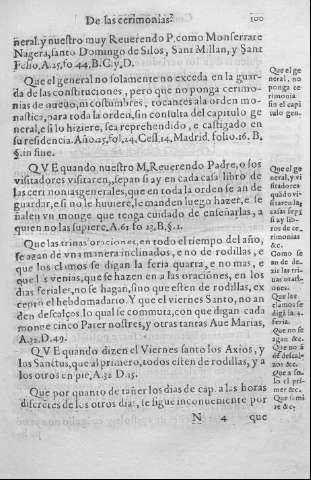 De las cerimonias 100
neral. y nuestro muy Reuerendo P. como Monserrate
Nagera, santo Domingo de Silos, Sant Millan, y Sant
Felio. A. 25. fo 44. B. C. y. D.
Que el general no solamente no exceda en la guar-
da de las constituciones, pero que no ponga cerimo-
nias de nueuo, ni costumbres, tocantes ala orden mo-
nastica, para toda la orden, sin consulta del capitulo ge
neral, e si lo hiziere, sea reprehendido, e castigado en
su residencia. Año. 25, fol. 24. Cess. 14. Madrid. folio. 16. B,
§. in fine.
QVE quando nuestro M. Reuerendo Padre, o los
visitadores visitaren, sepan si ay en cada casa libro de
las cerimonias generales, que en toda la orden se an de
guardar, e si no le huuiere, le manden luego hazer, e se
ñalen vn monge que tenga cuidado de enseñarlas, a
quien no las supiere. A. 61 fo 23. B, §. 2.
Que las trinas oraciones, en todo el tiempo del año,
se agan de vna manera inclinados, e no de rodillas, e
que los clamos se digan la feria quarta, e no mas, e
que las venias, que se hazen en a las oraciones, en los
dias feriales, no se hagan, sino que esten de rodillas, ex
cepto el hebdomadario. Y que el viernes Santo, no an
den descalços, lo qual se commuta, con que digan cada
monge cinco Pater nostres, y otras tantas Aue Marias,
A. 32. D. 49.
QVE quando dizen el Viernes santo los Axios, y
los Sanctus, que al primero, todos esten de rodillas, y a
los otros en pie, A. 32 D 25.
Que por quanto de tañer los dias de cap. a las horas
discretes de los otros dias, se sigue inconueniente por
N 4 que
Que el ge
neral, no
ponga ce
rimonia
sin el capi
tulo gen.
Que el ge
neral, y vi
sitadores
quãdo vi-
sitaren la,
casas sepã
si ay lib-
ros de ce-
rimonias
&c.
Como se
an de de-
zir las tri-
nas orati-
ones.
Que los
clamos se
digã la 4.
feria.
Que no se
agan &c.
Que no ã
de descal-
ços &c.
Que a so-
lo el pri-
mer &c.